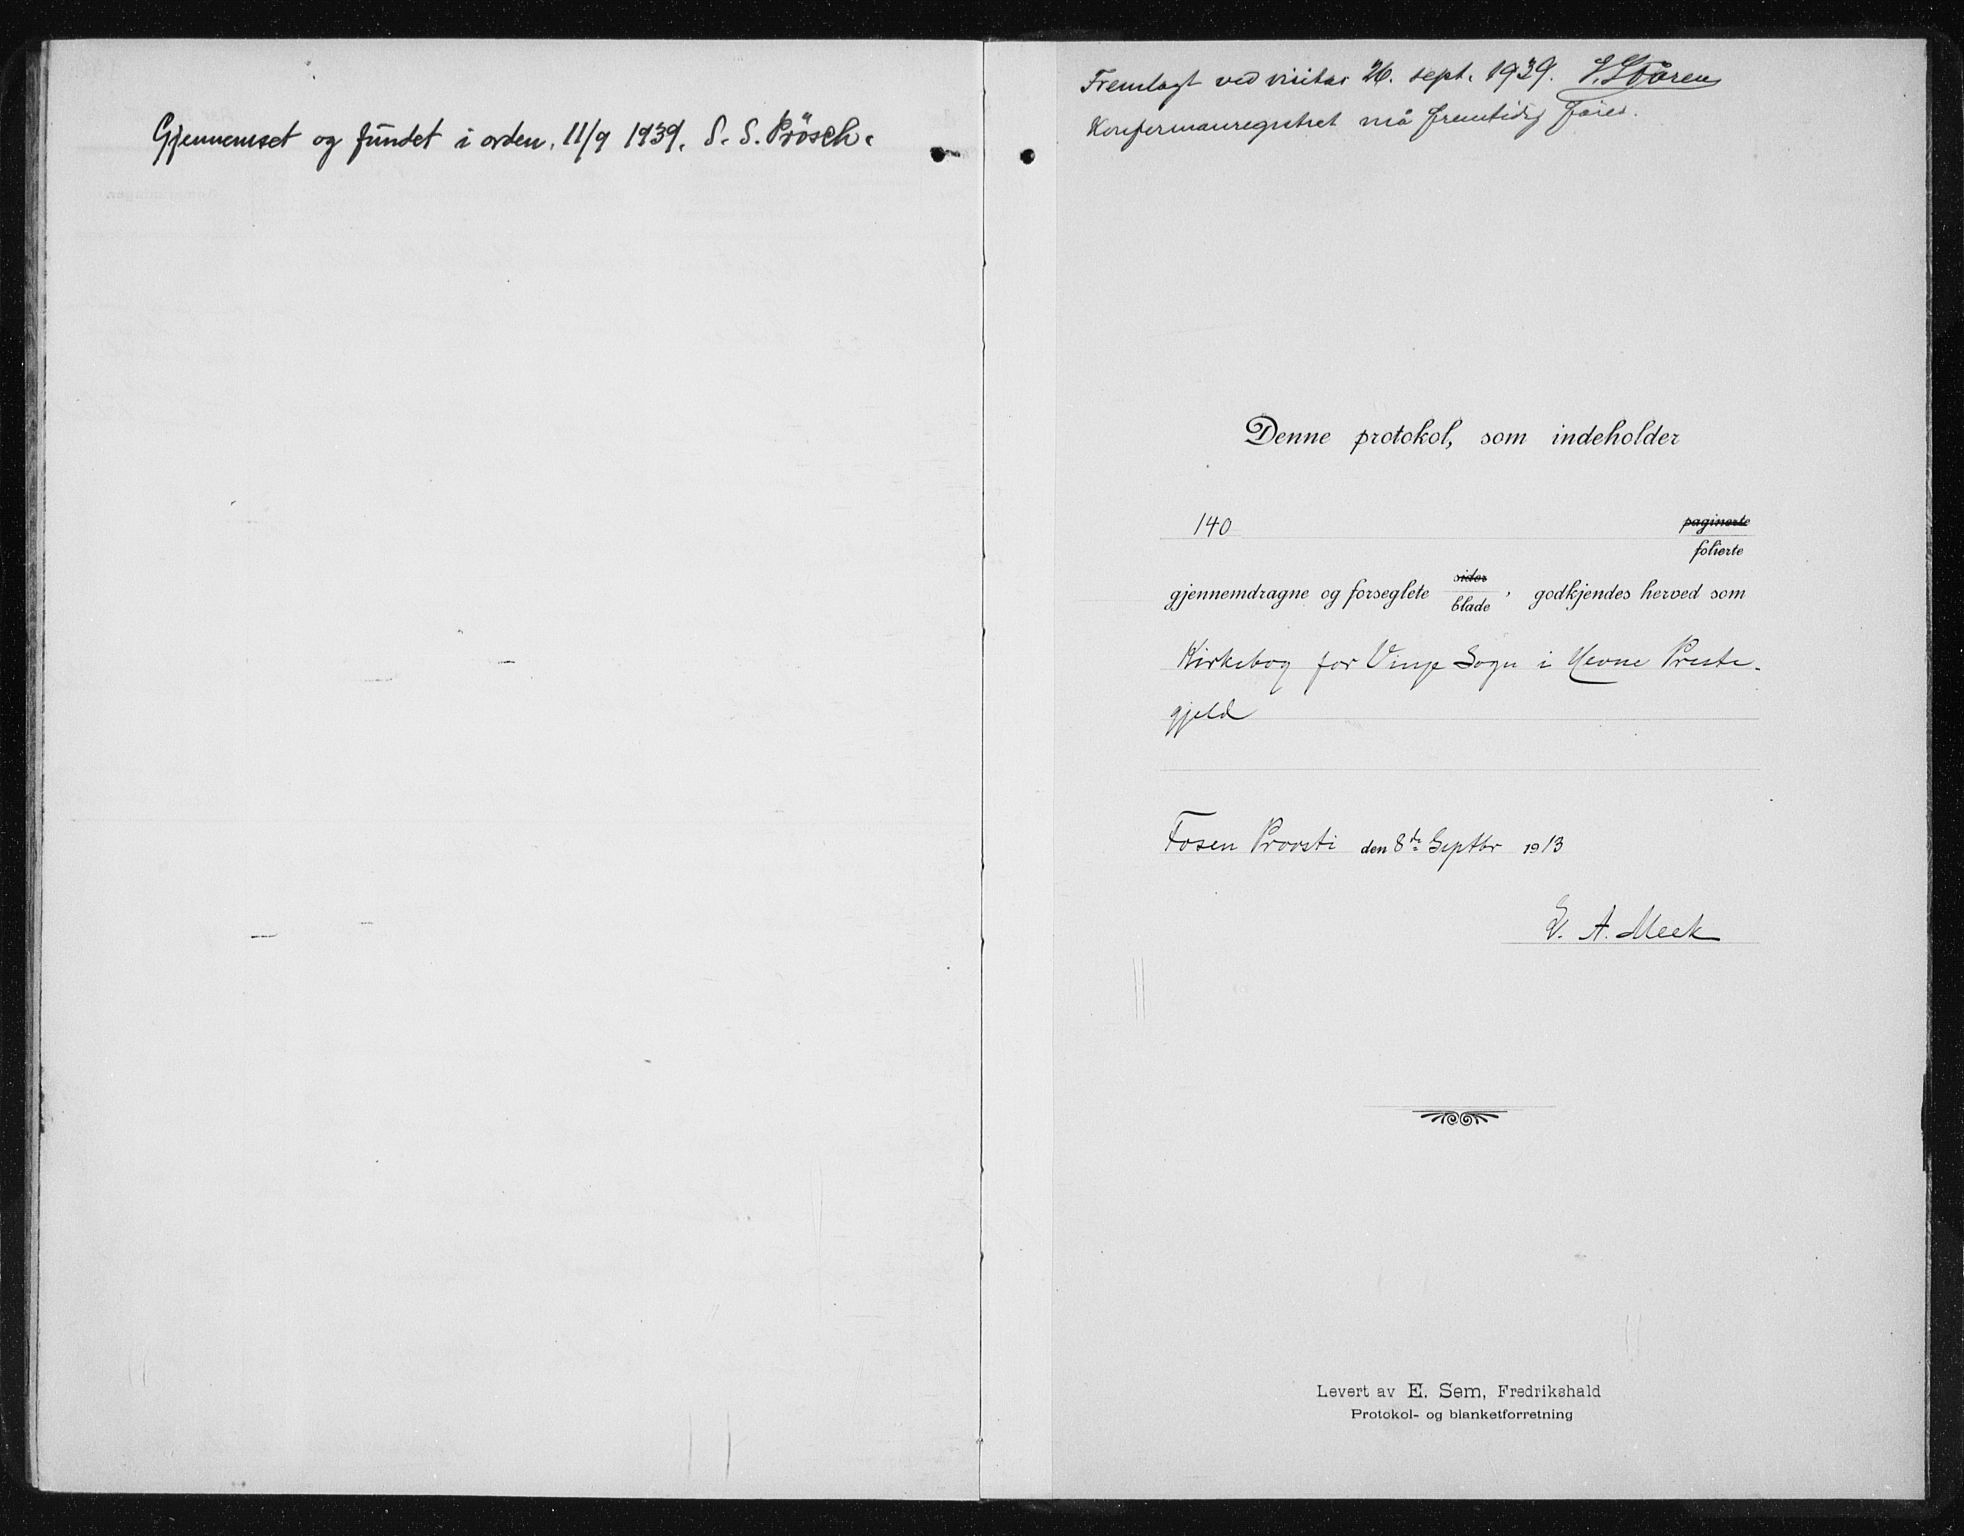 Gjennemset og fundet i orden. 11/9 1939. S. S. Prösch.
Fremlagt ved visitas 26. sept. 1939. J. Støren
må fremtidig føies.
Denne protokol, som indeholder
140 paginerte
folierte
gjennemdragne og forseglete sider blade, godkjendes herved som
Kirkebog for Vinje Sogn i Hevne Preste-
gjeld
Fosen Provsti den 8de Septbr 1913
A. Meek
Levert av E. Sem, Fredrikshald
Protokol- og blanketforretning